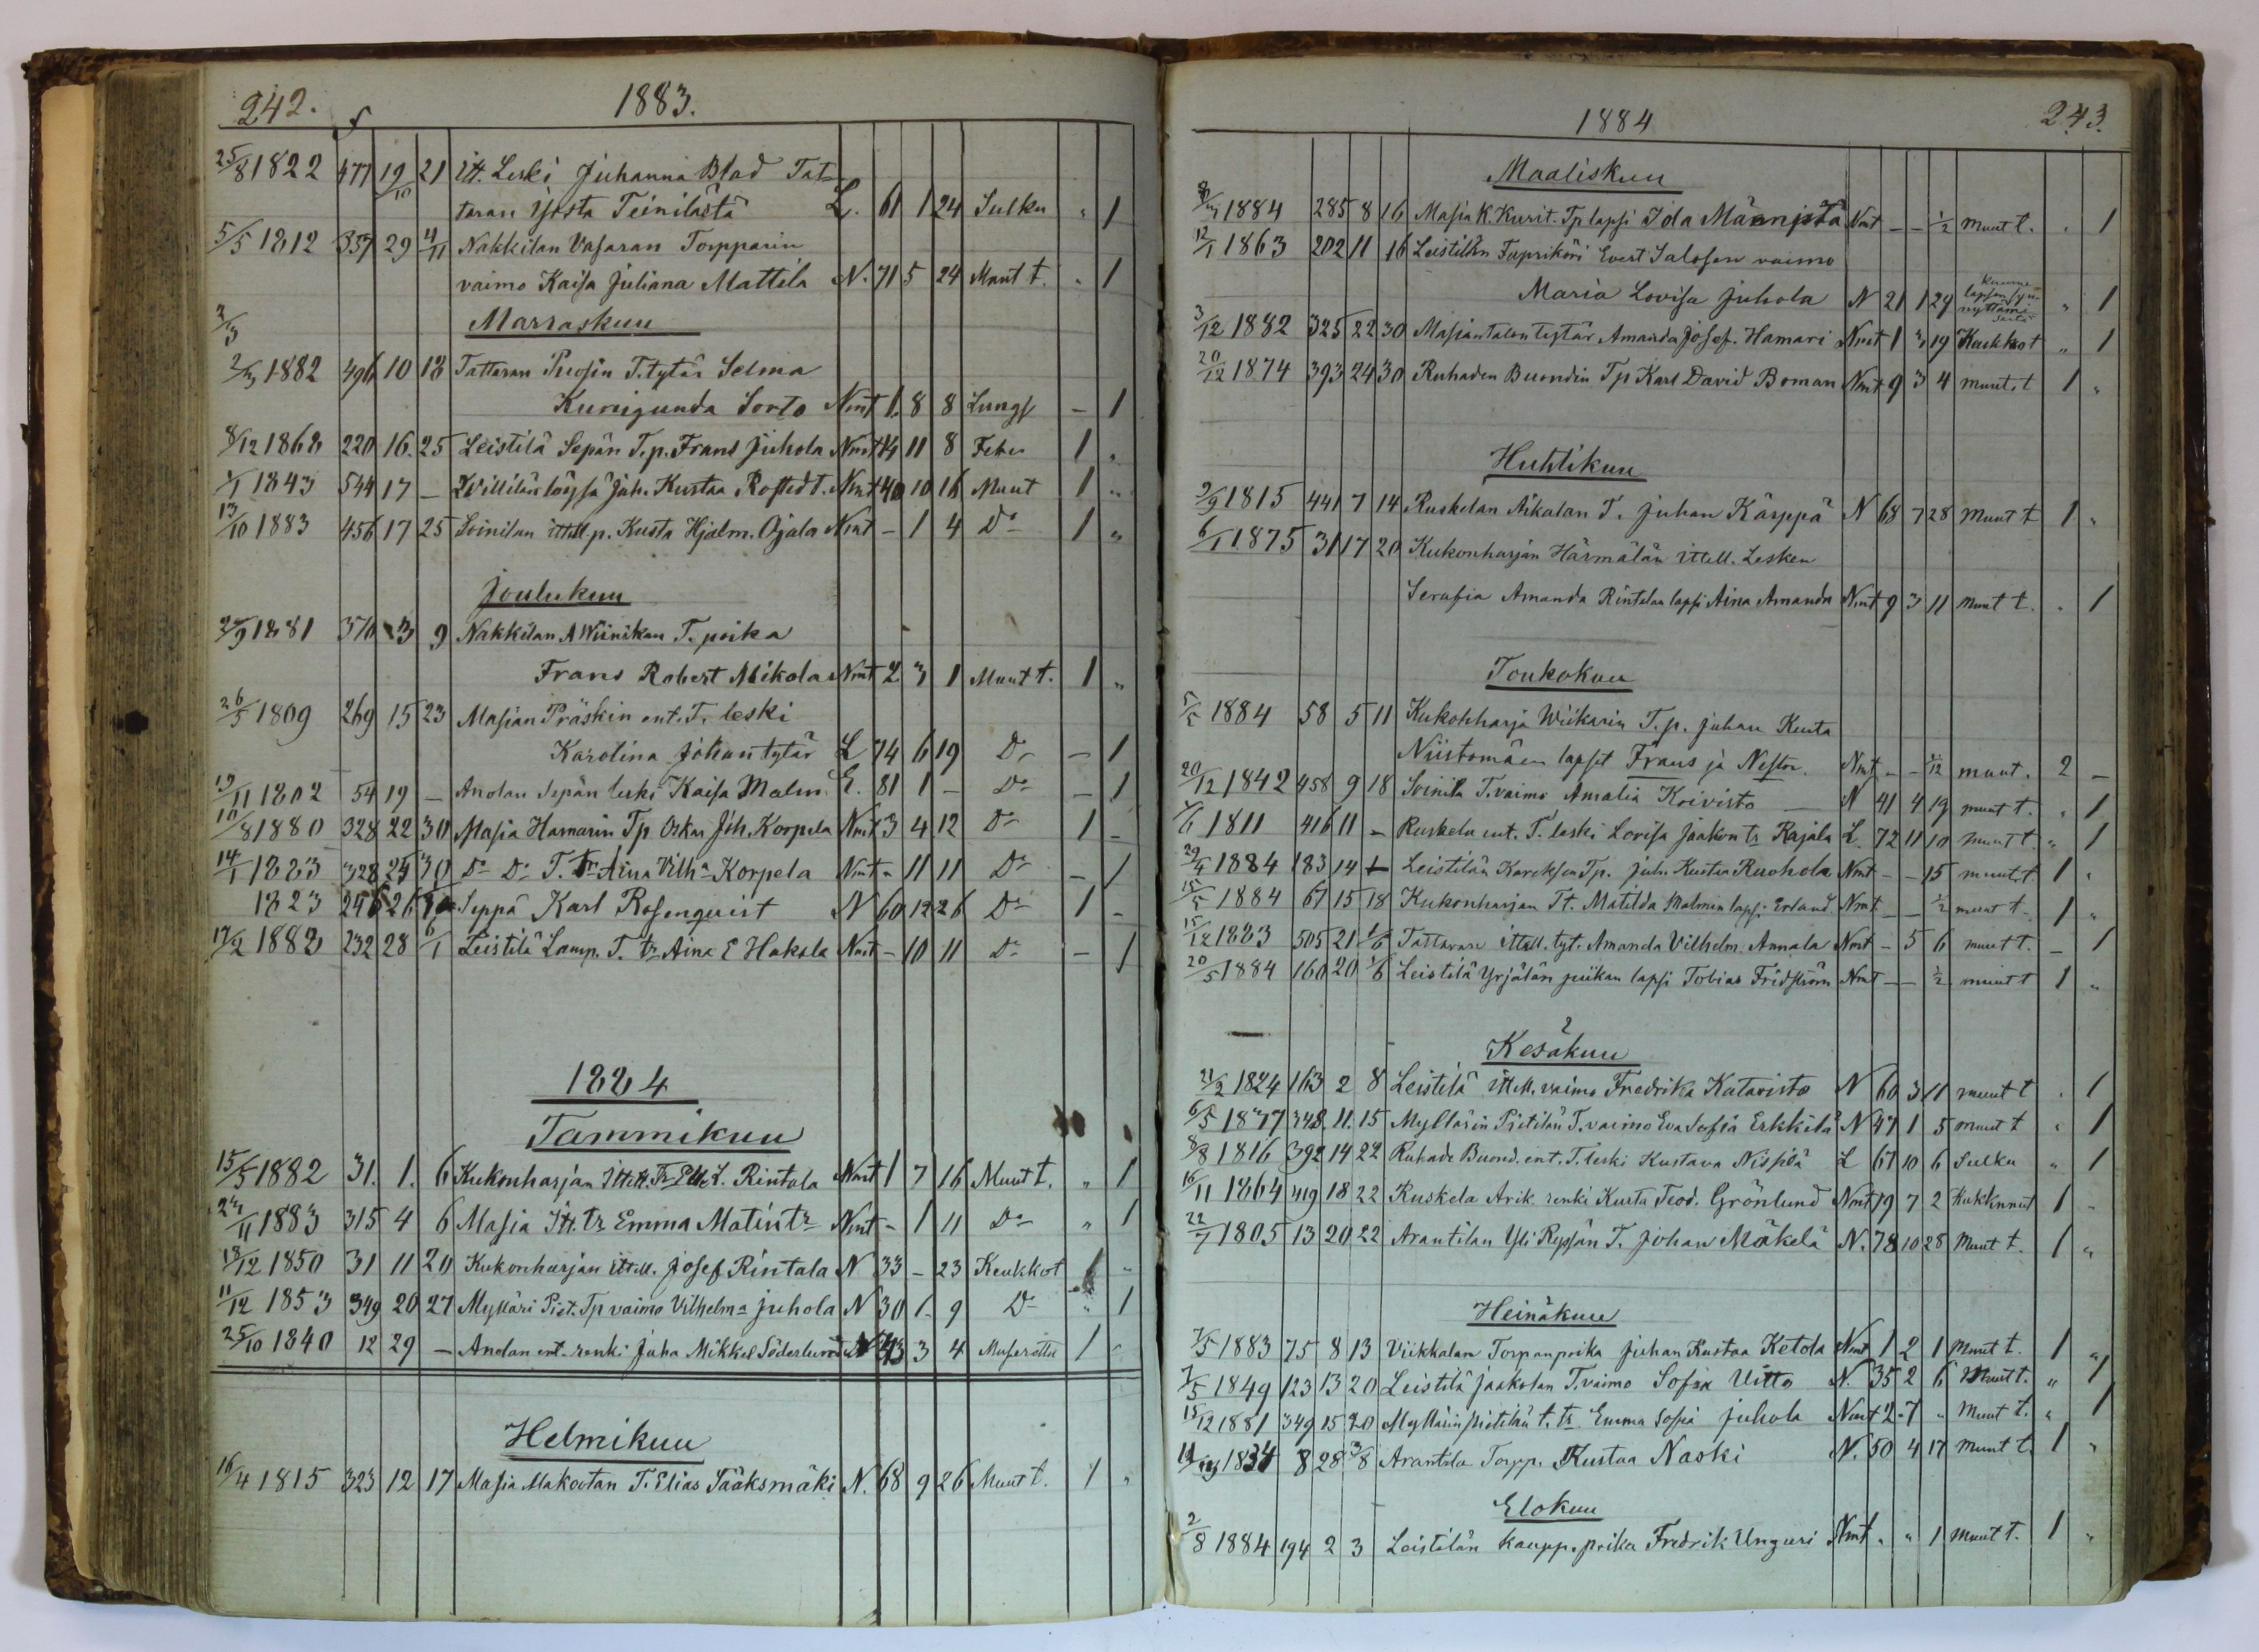 242. 1883.
25/8 1822 477 19/10 21 itt. Leski Juhanna Blad Tat-
taran Yststa Teinilästä L. 61 1 24 Sulku " 1
5/5 1812 357 29 4/11 Nakkilan Vasaran Torpparin
vaimo Kaisa Juliana Mattila N. 71 5 24 Muut t. " 1
Marraskuu
2/3 1882 496 10 18 Tattaran Puosin T. tytär Selma
Kunigunda Sorto Nmt 1 8 8 Lungs — 1
8/12 1868 220 16. 25 Leistilä Sepän T. p. Frans Juhola Nmt 14 11 8 Feber 1 "
1/1 1843 544 17 — Willilän löysä Joh. Kustaa Rostedt. Nmt 40 10 16 Muut 1 "
13/10 1883 456 17 25 Soinilan ittell p. Kusta Hjalm. Ojala Nmt - 1 4 Do 1 "
Joulukuu
2/9 1881 370 3 9 Nakkilan A Wiinikan T. poika
Frans Robert Mikola Nmt 2 3 1 Muut t. 1 "
26/5 1809 269 15 23 Masian Präskin ent. T. leski
Karolina Johantytär L 74 6 19 Do — 1
19/11 1802 54 19 — Anolan Sepän leski Kaisa Malm E. 81 1 - Do — 1
10/8 1880 328 22 30 Masia Hamarin Tp Oskar Joh. Korpela Nmt 3 4 12 Do 1 -
14/1 1883 328 25 30 Do Do T. tr Aina Vilh. Korpela Nmt - 11 11 Do — 1
1823 26 Seppä Karl Rosenqvist N 60 12 26 Do 1 -
17/2 1883 232 28 6/1 Leistilä Lamp. T. tr Aina E Hakala Nmt - 10 11 Do — 1
1884
Tammikuu
15/5 1882 31. 1. 6 Kukonharjan Ittell. Tr L. Rintala Nmt 1 7 16 Muut t. " 1
24/11 1883 315 4 6 Masia Itt. tr Emma Matintr Nmt - 1 11 Do " 1
18/12 1850 31 11 20 Kukonharjan ittell. Josef Rintala N 33 - 23 Keukkot 1 -
11/12 1853 349 20 27 Mylläri Piet. Tp vaimo Vilhelma Juhola N 30 1 9 Do " 1
25/10 1840 12 29 — Anolan ent. renki Juha Mikkel Söderlund N 43 3 4 1 -
Helmikuu
16/4 1815 323 12 17 Masia Makootan T. Elias Sääksmäki N. 68 9 26 Muut t. 1 "
1884 243.
Maaliskuu
1884 285 8 16 Masia K. Kurit. Tp lapsi Ida Männistä Nmt - - 1/2 muut t. " 1
12/1 1863 202 11 16 Leistilän Fapriköri Evert Salosen vaimo
Maria Lovisa Juhola N 21 1 29 " 1
3/12 1882 325 22 30 Masiantalon tytär Amanda Josef. Hamari Nmt 1 3 19 Kuckkot " 1
20/12 1874 393 24 30 Ruhaden Buondin Tp Karl David Boman Nmt 9 3 4 muut. t 1 "
Huhtikuu
2/9 1815 441 7 14 Ruskelan Aikalan T. Juhan Kärppä N 68 7 28 Muut t 1 "
6/1 1875 31 17 20 Kukonharjan Härmälän ittell. Lesken
Serafia Amanda Rintalan lapsi Aina Amanda Nmt 9 3 11 Muut t. " 1
Toukokuu
5/5 1884 58 5 11 Kukonharja Wiikarin T. p. Juhan Kusta
Niistomäen lapset Frans ja Nestor. Nmt - - 1/12 muut. 2 —
20/12 1842 458 9 18 Soinila T. vaimo Amalia Koivisto — N 41 4 19 muut t. " 1
1811 416 11 - Ruskela ent. T. leski Lovisa Jaakon tr Rajala L 72 11 10 muut t. " 1
29/4 1884 183 14 Leistilän Tp. Juh. Kustaa Ruohola Nmt - - 15 muut. t. 1 "
15/5 1884 67 15 18 Kukonharjan Tt. Matilda Malmin lapsi Erland Nmt - - 1/2 muut t- 1 "
15/12 1883 505 21 1/6 Tattaran ittell. tyt. Amanda Vilhelm. Annala Nmt - 5 6 muut t. — 1
20/5 1884 160 20 1/6 Leistilä Yrjälän piikan lapsi Tobias Fridström Nmt - - 1/2 muut t 1 "
Kesäkuu
21/2 1824 163 2 8 Leistilä ittell. vaimo Fredrika Katavisto N 60 3 11 muut t " 1
6/5 1837 348. 11. 15 Myllärin Pietilän T. vaimo Eva Sofia Erkkilä N 47 1 5 muut t " 1
8/8 1816 392 14 22 Ruhade Buond. ent. T. leski Kustava Nissilä L 67 10 6 Sulku " 1
16/11 1864 419 18 22 Ruskela Arik. renki Kusta Teod. Grönlund Nmt 19 7 2 Hukkunut 1 -
22/7 1805 13 20 22 Arantilan Yli Repsän T. Johan Mäkelä N. 78 10 28 Muut t. 1 "
Heinäkuu
7/5 1883 75 8 13 Viikkalan Torpanpoika Juhan Kustaa Ketola Nmt 1 2 1 Muut t. 1 "
7/5 1849 123 13 20 Leistilä Jaakolan T. vaimo Sofia Uitto N. 35 2 6 Muut t. " 1
15/12 1881 349 15 20 Myllärin Pietilän t. tr Emma Sofia Juhola Nmt 2 7 " Muut t. " 1
1834 8 28 3/8 Arantila Torpp. Kustaa Naski N. 50 4 17 Muut t. 1 "
Elokuu
2/8 1884 194 2 3 Leistilän kaupp. poika Fredrik Unguri Nmt " " 1 Muut t. 1 "